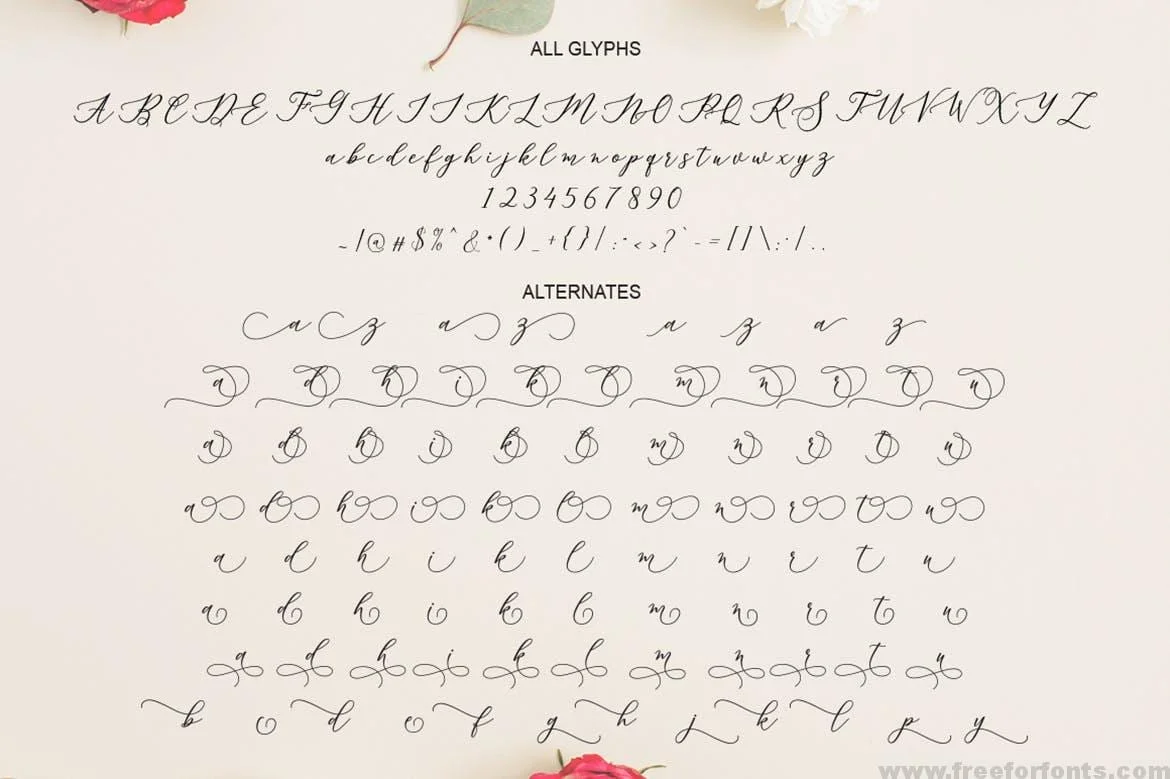 ALL GLYPHS
A B C D E F G H I J K L M N O P Q R S T U V W X Y Z
a b c d e f g h i j k l m n o p q r s t u v w x y z
1 2 3 4 5 6 7 8 9 0
~ ! @ # $ % ^ & * ( ) _ + { } | : " < > ? ` - = [ ] \ ; ' / , .
ALTERNATES
a z a z a z a z
a d h i k l m n r t u
a d h i k l m n r t u
a d h i k l m n r t u
a d h i k l m n r t u
a d h i k l m n r t u
a d h i k l m n r t u
b o d o f g h j k l p y
www.freeforfonts.com